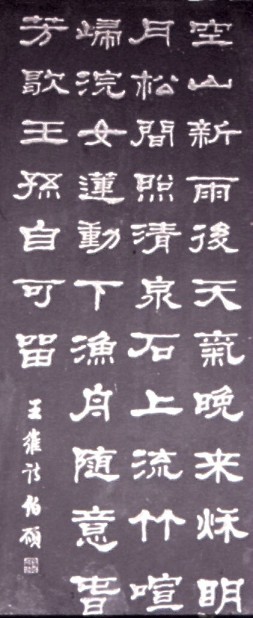 空山新雨後天氣晚来秋明
月松間照清泉石上流竹喧
歸浣女蓮動下漁舟随意春
芳歇王孫自可留
王維诗